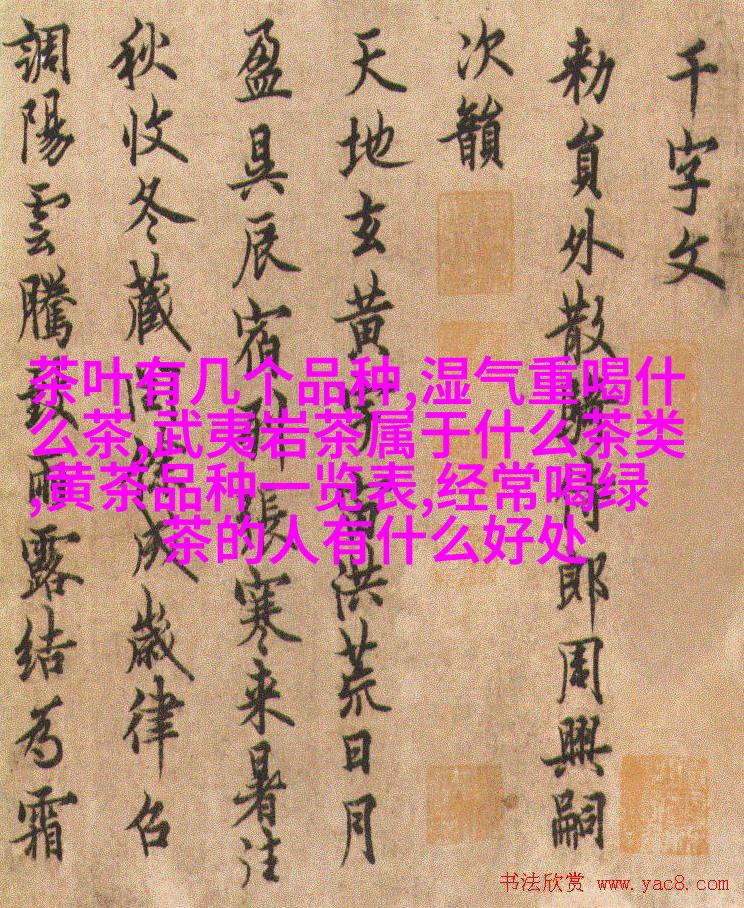 千字文
勑員外散騎侍郎周興嗣
次韻
天地玄黄宇宙洪荒日月
盈昃辰宿列張寒来暑往
秋收冬藏閏餘成歲律召
調陽雲騰致雨露結為霜
茶叶有几个品种,湿气重喝什
么茶,武夷岩茶属于什么茶类
,黄茶品种一览表,经常喝绿
茶的人有什么好处
书法欣赏 www.yac8.com